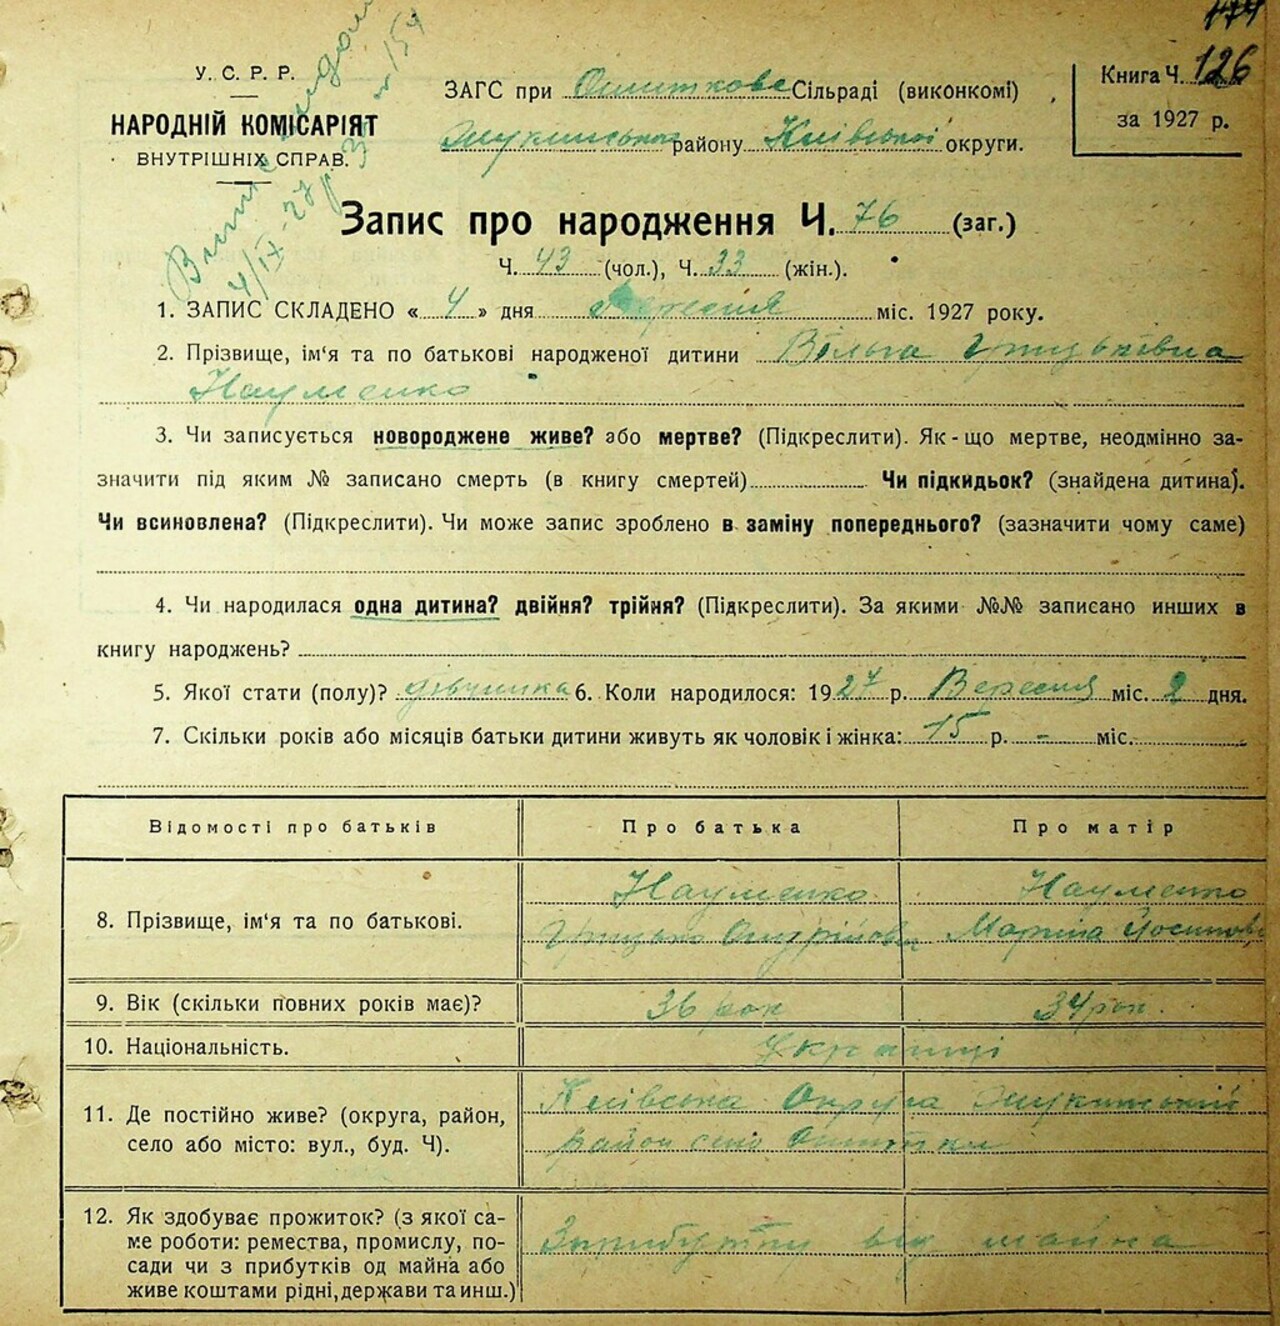 126
У. С. Р. Р.
НАРОДНІЙ КОМІСАРІЯТ
ВНУТРІШНІХ СПРАВ.
ЗАГС при Ошиткове Сільраді (виконкомі)
району Київської округи.
Книга Ч. 126
за 1927 р.
№ 154
4/ІХ-27 р.
Запис про народження Ч. 76 (заг.)
Ч. 43 (чол.), Ч. 33 (жін.).
1. ЗАПИС СКЛАДЕНО « 4 » дня Вересня міс. 1927 року.
2. Прізвище, ім‘я та по батькові народженої дитини Вольга Грицьківна
Науменко
3. Чи записується новороджене живе? або мертве? (Підкреслити). Як-що мертве, неодмінно за-
значити під яким № записано смерть (в книгу смертей) Чи підкидьок? (знайдена дитина).
Чи всиновлена? (Підкреслити). Чи може запис зроблено в заміну попереднього? (зазначити чому саме)
4. Чи народилася одна дитина? двійня? трійня? (Підкреслити). За якими №№ записано инших в
книгу народжень?
5. Якої стати (полу)? дівчинка 6. Коли народилося: 1927 р. Вересня міс. 2 дня.
7. Скільки років або місяців батьки дитини живуть як чоловік і жінка: 15 р. - міс.
Відомості про батьків Про батька Про матір
8. Прізвище, ім‘я та по батькові. Науменко Науменко
Грицько Андрійович Марина Йосипов
9. Вік (скільки повних років має)? 36 рок 34 рок.
10. Національність. Українці
11. Де постійно живе? (округа, район, Київська Округа
село або місто: вул., буд. Ч). район село Ошитки
12. Як здобуває прожиток? (з якої са-
ме роботи: ремества, промислу, по-
сади чи з прибутків од майна або
живе коштами рідні, держави та инш.)
З прибутку від майна